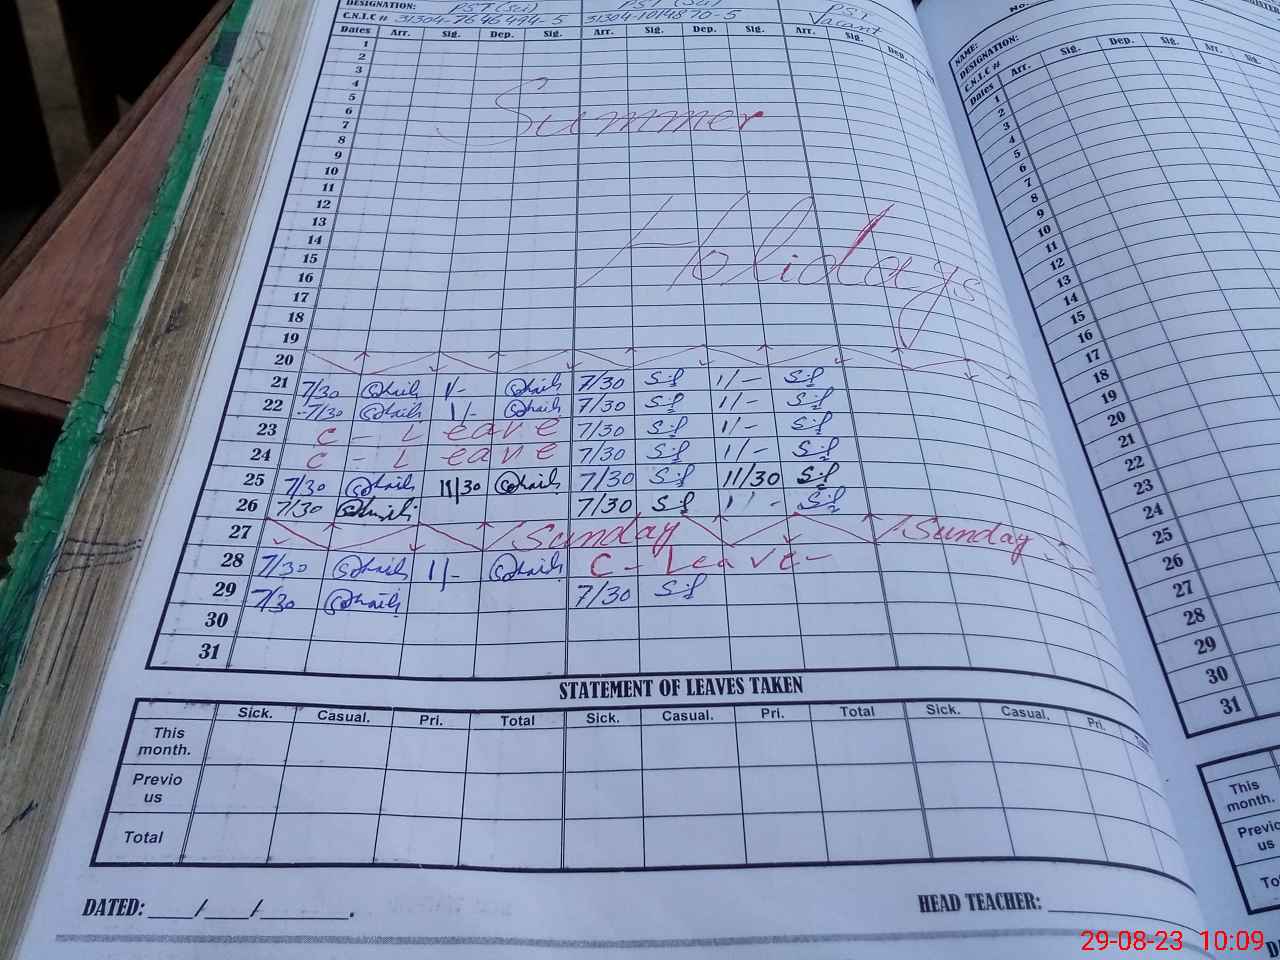 DESIGNATION: PST (Sci) PST (Sci) PST
C.N.I.C # 31304-7646494-5 31304-1014870-5 Vacant
Dates Arr. Sig. Dep. Sig. Arr. Sig. Dep. Sig. Arr. Sig. Dep.
1
2
3
4
5
6
7
8
Summer
9
10
11
12
13
14
15
16
Holidays
17
18
19
20
21 7/30 1/- 7/30 1/-
22 7/30 1/- 7/30 1/-
23 C - Leave 7/30 1/-
24 C - Leave 7/30 1/-
25 7/30 11/30 7/30 11/30
26 7/30 7/30 1/-
27 Sunday Sunday
28 7/30 1/- C - Leave -
29 7/30 7/30
30
31
STATEMENT OF LEAVES TAKEN
Sick. Casual. Pri. Total Sick. Casual. Pri. Total Sick. Casual. Pri.
This month.
Previo us
Total
DATED: ____/____/________.
HEAD TEACHER:
No.
NAME:
DESIGNATION:
C.N.I.C #
Dates Arr. Sig. Dep. Sig. Arr. Sig.
1
2
3
4
5
6
7
8
9
10
11
12
13
14
15
16
17
18
19
20
21
22
23
24
25
26
27
28
29
30
31
This month.
Previo us
29-08-23 10:09